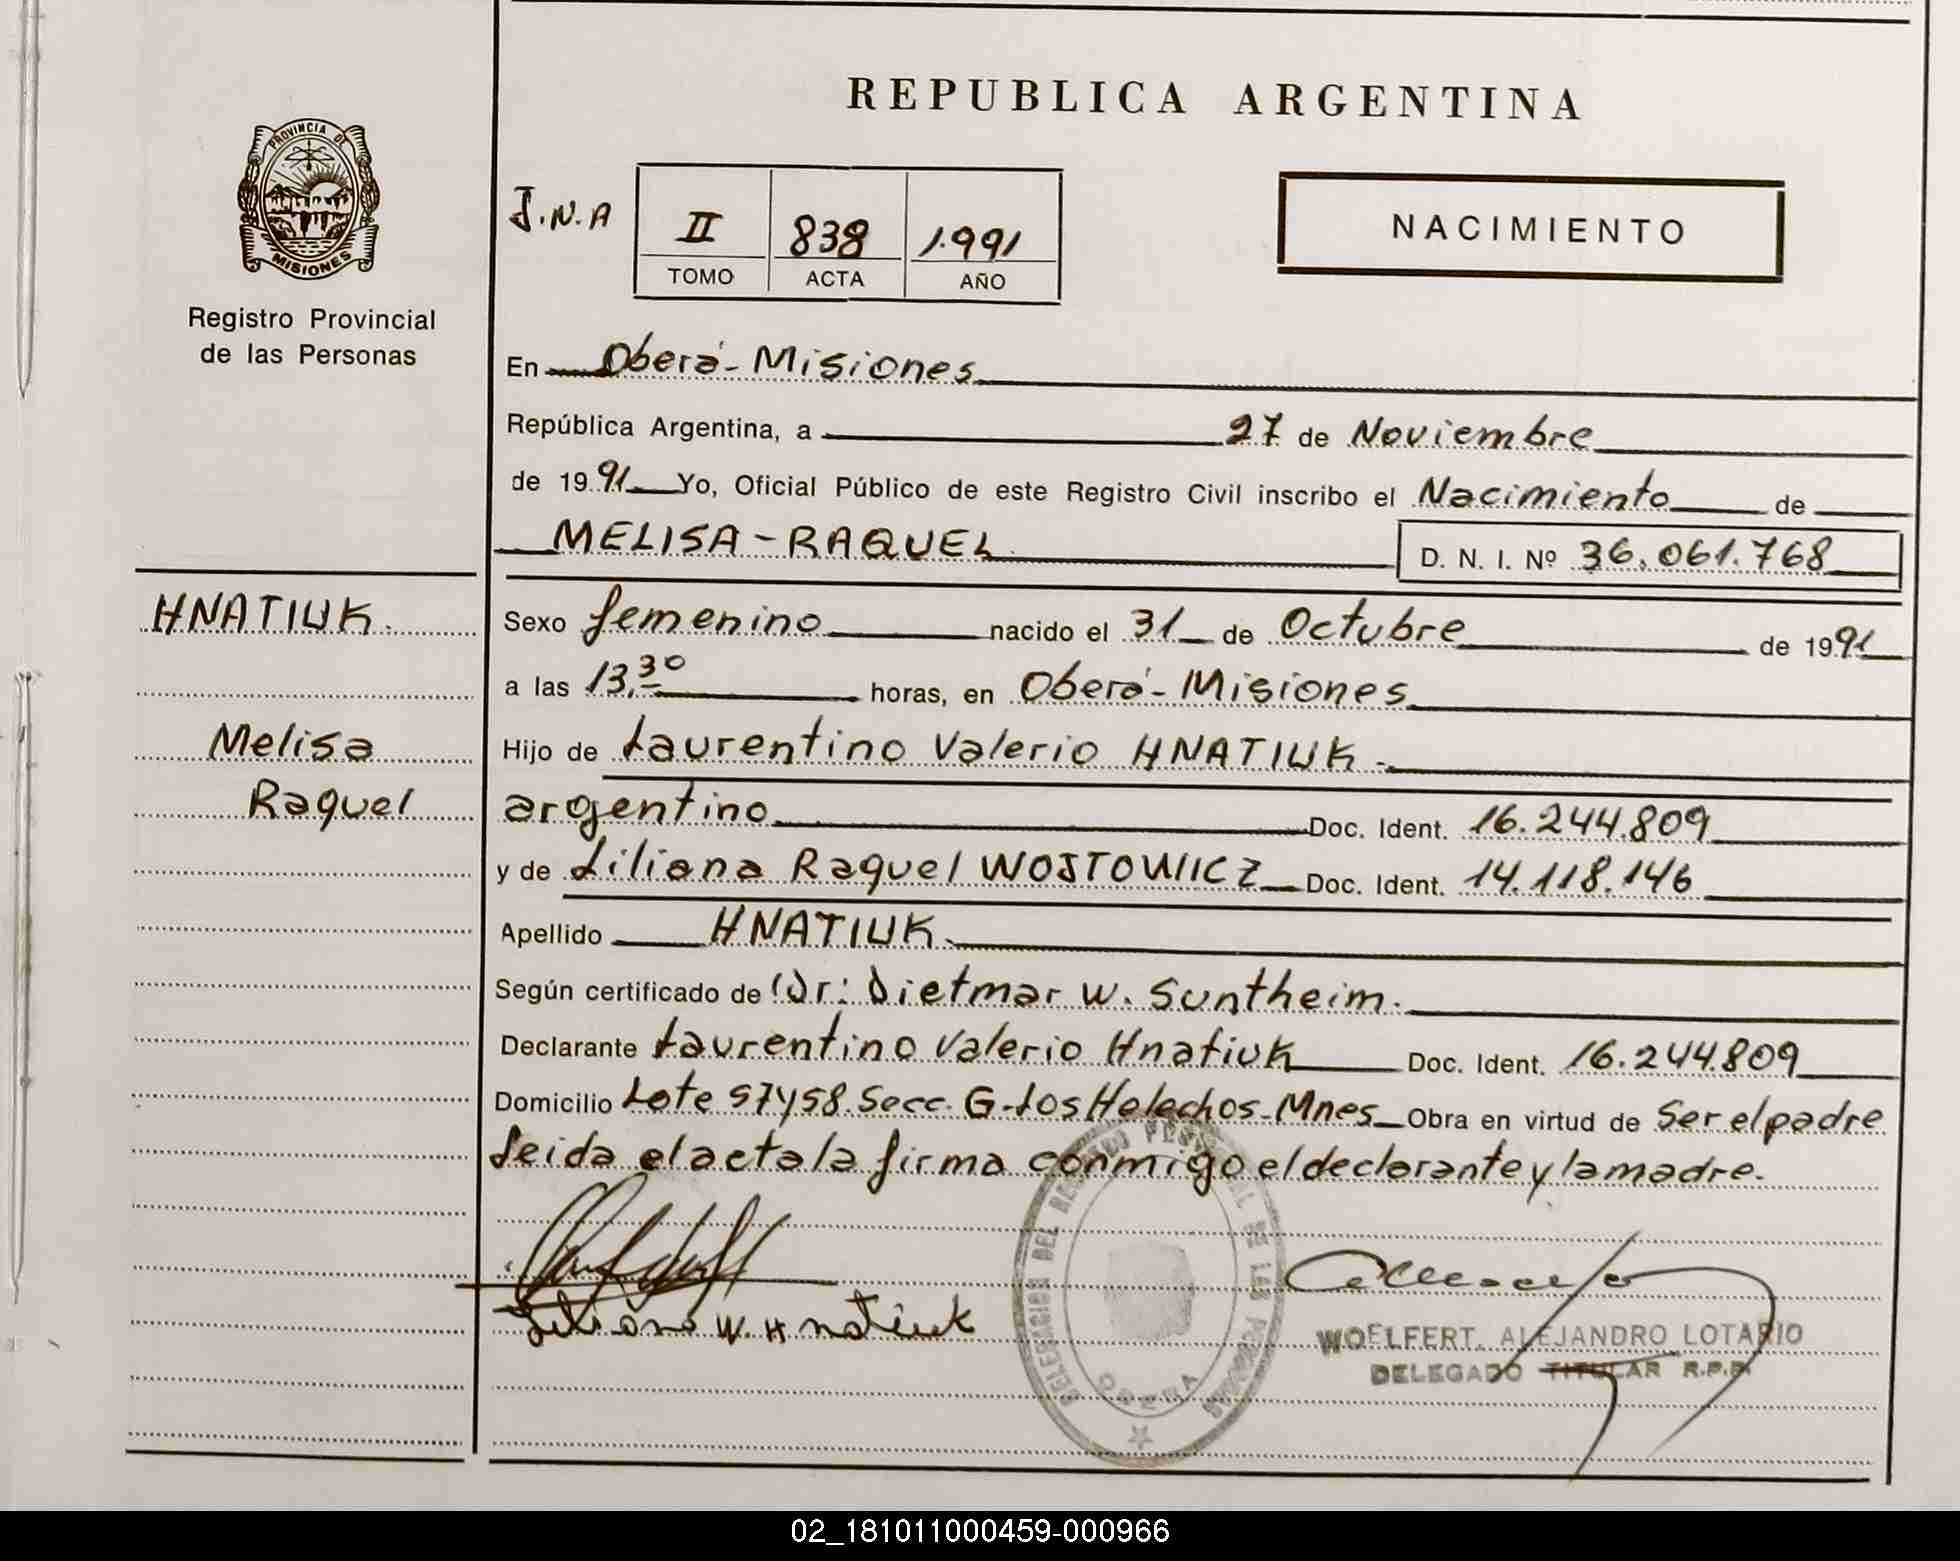 REPUBLICA ARGENTINA
PROVINCIA DE
MISIONES
Registro Provincial
de las Personas
J.N.A
II 838 1.991
TOMO ACTA AÑO
NACIMIENTO
En Oberá - Misiones
República Argentina, a 27 de Noviembre
de 1991 Yo, Oficial Público de este Registro Civil inscribo el Nacimiento de
MELISA - RAQUEL D. N. I. Nº 36.061.768
HNATIUK.
Melisa
Raquel
Sexo femenino nacido el 31 de Octubre de 1991
a las 13,30 horas, en Oberá - Misiones
Hijo de Laurentino Valerio HNATIUK -
argentino Doc. Ident. 16.244.809
y de Liliana Raquel WOJTOWICZ Doc. Ident. 14.118.146
Apellido HNATIUK
Según certificado de Dr: Dietmar W. Suntheim.
Declarante Laurentino Valerio Hnatiuk Doc. Ident. 16.244.809
Domicilio Lote 57 y 58. Secc. G - Los Helechos - Mnes Obra en virtud de Ser el padre
Leida el acta la firma conmigo el declarante y la madre.
Liliana W. Hnatiuk
DELEGACION DEL REGISTRO PROVINCIAL DE LAS PERSONAS
OBERA
WOELFERT, ALEJANDRO LOTARIO
DELEGADO TITULAR R.P.P.
02_181011000459-000966